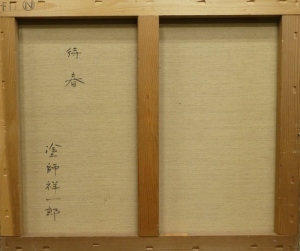 待春
塗師祥一郎